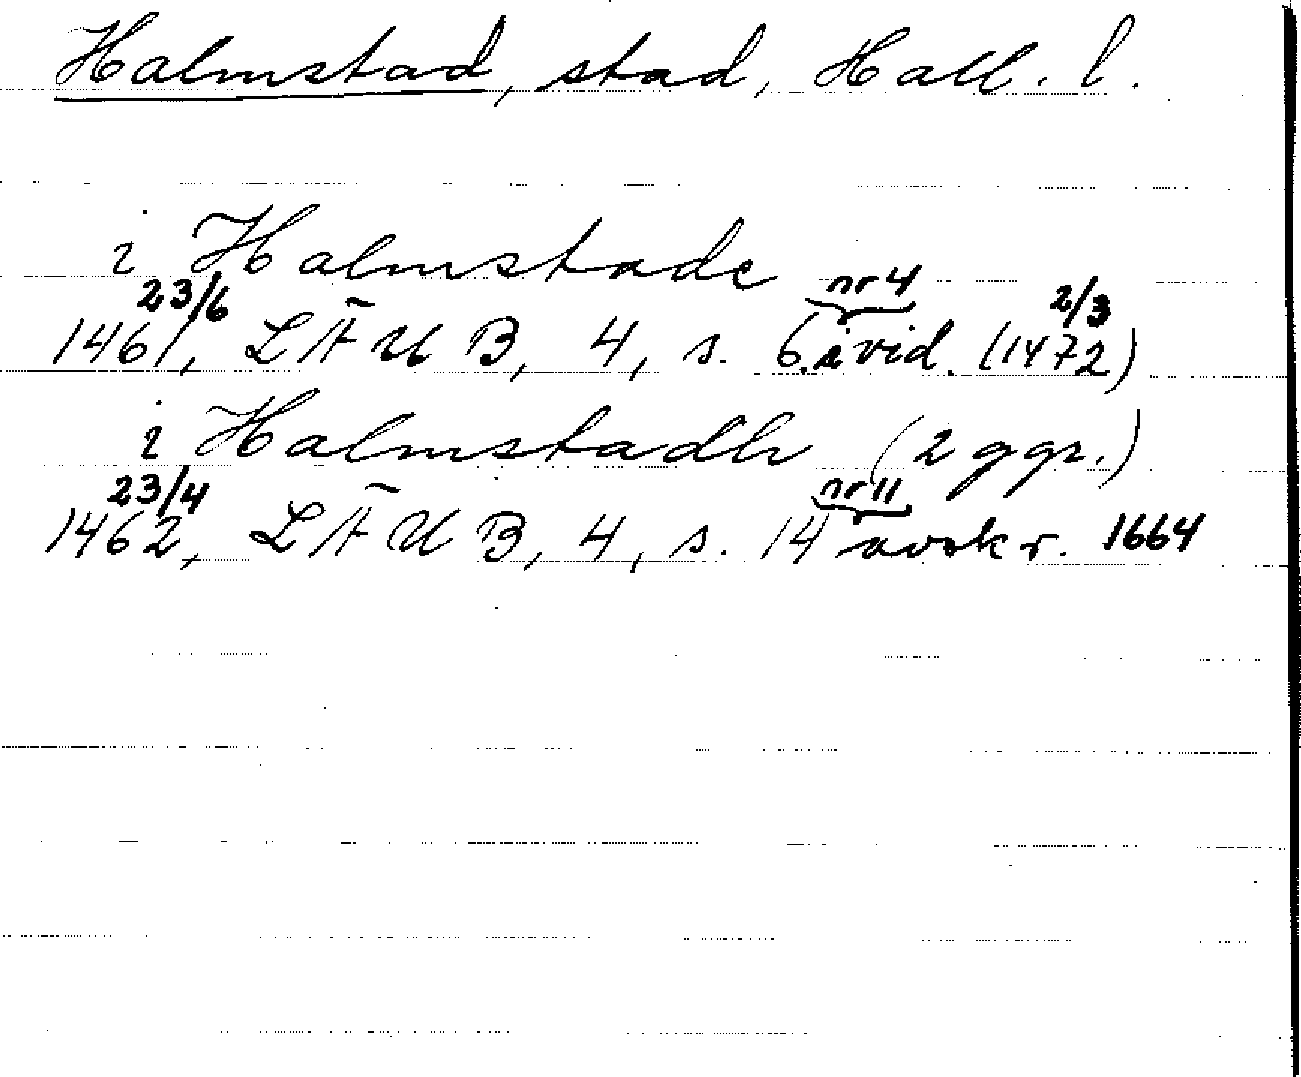 Halmstad, stad, Hall. l.
i Halmstade
23/6 nr 4 2/3
1461, LÄUB, 4, s. 6. i vid. (1472)
i Halmstadh (2 ggr.)
23/4 nr 11
1462, LÄUB, 4, s. 14 avskr. 1664